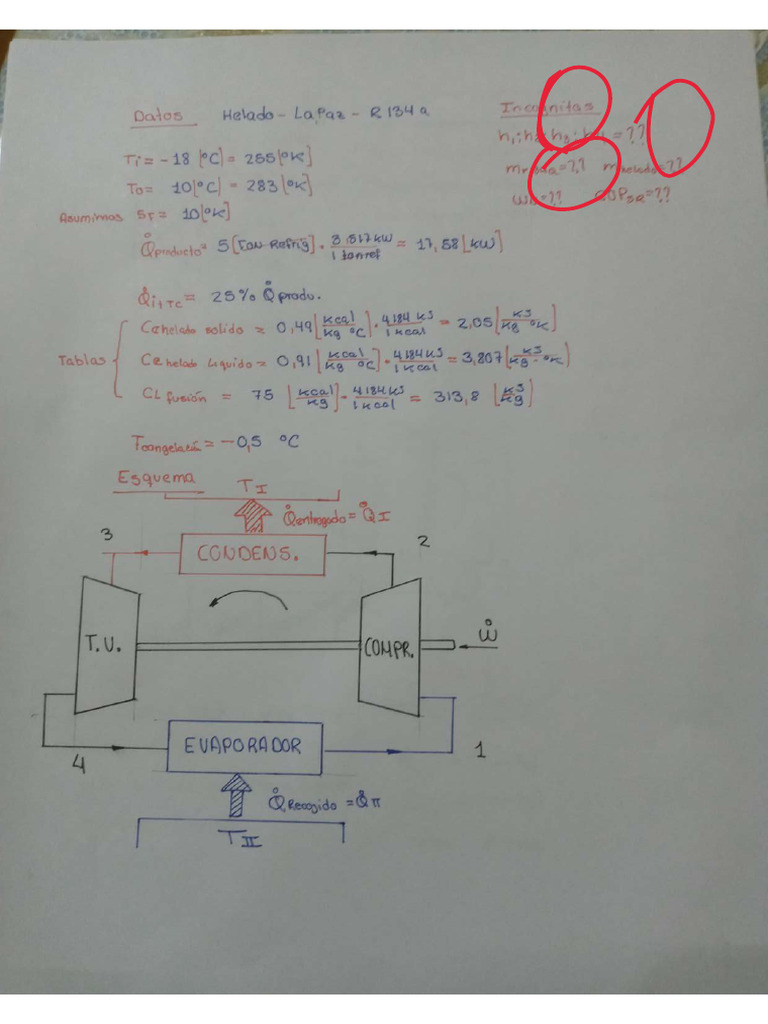 Datos Helado - La Paz - R134a
Incognitas
Ti = -18 [°C] = 255 [°K]
To = 10 [°C] = 283 [°K]
Asumimos δT = 10 [°K]
h1; h2; h3; h4 = ??
mR134a = ?? mhelado = ??
= ?? = ??
Q̇producto = 5 [Ton Refrig] · 3.517 kW / 1 tonref = 17,58 [kW]
Q̇i,Tc = 25% Q̇produ.
Tablas
Cehelado solido = 0,49 [kcal / kg °C] · 4184 KJ / 1 kcal = 2,05 [KJ / kg °K]
Cehelado Liquido = 0,91 [kcal / kg °C] · 4184 KJ / 1 kcal = 3,807 [KJ / kg · °K]
CLfusión = 75 [kcal / kg] · 4184 KJ / 1 kcal = 313,8 [KJ / kg]
Tcongelación = -0,5 °C
Esquema
TI
Q̇entregado = Q̇I
3
CONDENS.
2
T.U.
COMPR.
Ẇ
EVAPORADOR
4
1
Q̇Recogido = Q̇II
TII
80